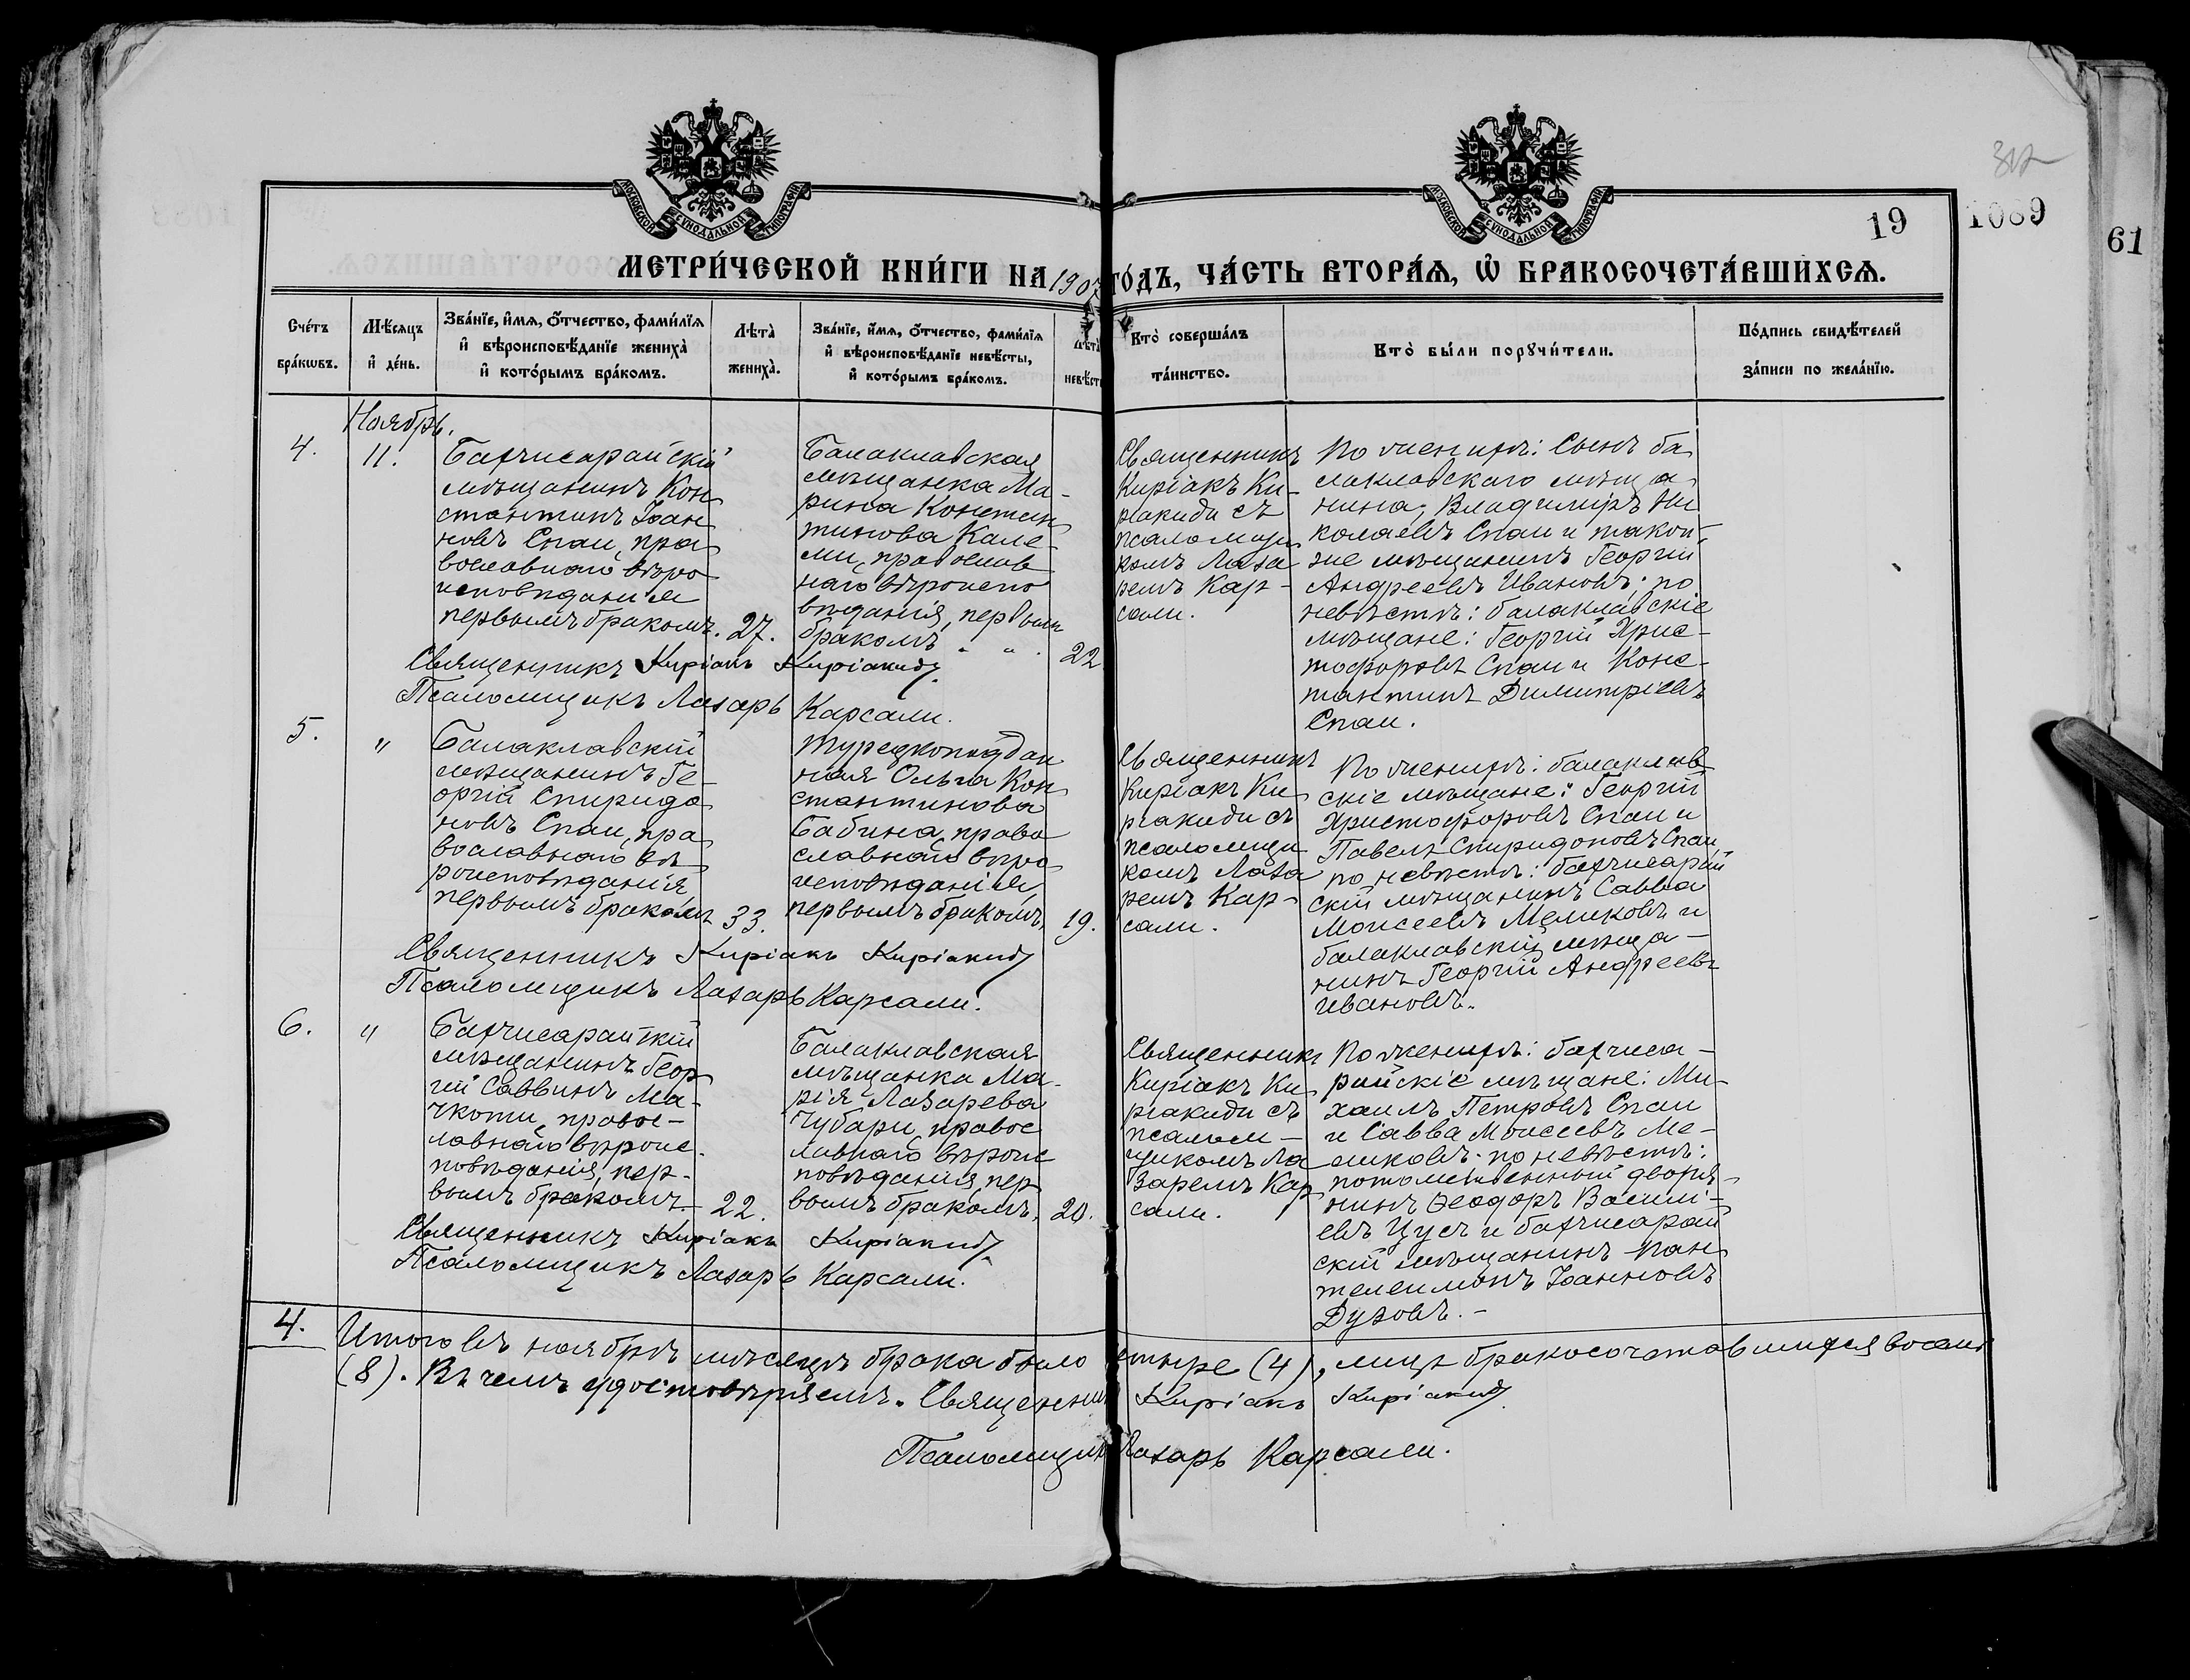 312
19
1089
61
МОСКОВСКОЙ СѴНОДАЛЬНОЙ ТИПОГРАФІИ
МОСКОВСКОЙ СѴНОДАЛЬНОЙ ТИПОГРАФІИ
МЕТРИ́ЧЕСКОЙ КНИ́ГИ НА 1907 ГО́ДЪ, ЧА́СТЬ ВТОРА́Ѧ, Ѽ БРАКОСОЧЕТА́ВШИХСѦ.
Сче́тъ бра́кѡвъ.
Мѣ́сѧцъ и҆ де́нь.
Зва́нїе, и҆́мѧ, ѻ҆́тчество, фами́лїѧ и҆ вѣроисповѣ́данїе жениха̀ и҆ кото́рымъ бра́комъ.
Лѣта̀ жениха̀.
Зва́нїе, и҆́мѧ, ѻ҆́тчество, фами́лїѧ и҆ вѣроисповѣ́данїе невѣ́сты, и҆ кото́рымъ бра́комъ.
Лѣта̀ невѣ́сты
Кто̀ соверша́лъ та́инство.
Кто̀ бы́ли порꙋчи́тели.
По́дпись свидѣ́телей за́писи по жела́нїю.
Ноябрь.
4.
11.
Бахчисарайскій
мѣщанинъ Кон
стантинъ Іоан
новъ Спаи, пра
вославнаго вѣро
исповѣданія
первымъ бракомъ.
27.
Балаклавская
мѣщанка Ма-
рина Констан
тинова Кале
ми, православ
наго вѣроиспо
вѣданія, первымъ
бракомъ " ".
22
Священникъ
Киріакъ Ки-
ріакиди съ
псаломщи
комъ Лаза
ремъ Кар-
сали.
По женихѣ: Сынъ ба
лаклавскаго мѣща
нина, Владимиръ Ни
колаевъ Спаи и такой-
же мѣщанинъ Георгій
Андреевъ Ивановъ; по
невѣстѣ: балаклавскіе
мѣщане: Георгій Хрис-
тофоровъ Спаи и Конс-
тантинъ Димитріевъ
Спаи.
Священникъ Киріакъ Киріакиди
Псаломщикъ Лазарь Карсали.
5.
"
Балаклавскій
мѣщанинъ Ге-
оргій Спиридо
новъ Спаи, пра
вославнаго вѣ
роисповѣданія
первымъ бракомъ
33.
Турецкоподдан
ная Ольга Кон
стантинова
Бабина, право
славнаго вѣро
исповѣданія,
первымъ бракомъ,
19.
Священникъ
Киріакъ Ки
ріакиди съ
псаломщи
комъ Лаза
ремъ Кар-
сали.
По женихѣ: балаклав
скіе мѣщане: Георгій
Христофоровъ Спаи и
Павелъ Спиридоновъ Спаи,
по невѣстѣ: бахчисарай
скій мѣщанинъ Савва
Моисеевъ Меликовъ и
балаклавскій мѣща-
нинъ Георгій Андреевъ
Ивановъ.
Священникъ Киріакъ Киріакиди
Псаломщикъ Лазарь Карсали.
6.
"
Бахчисарайскій
мѣщанинъ Геор
гій Саввинъ Ма-
чкоти, правос-
лавнаго вѣроис-
повѣданія, пер-
вымъ бракомъ.
22.
Балаклавская
мѣщанка Ма-
рія Лазарева
Чубари, правос
лавнаго вѣроис
повѣданія, пер
вымъ бракомъ,
20.
Священникъ
Киріакъ Ки
ріакиди съ
псалом-
щикомъ Ла
заремъ Кар
сали.
По женихѣ: бахчиса-
райскіе мѣщане: Ми-
хаилъ Петровъ Спаи
и Савва Моисеевъ Ме-
ликовъ. по невѣстѣ:
потомственный дворя-
нинъ Ѳеодоръ Василі-
евъ Цусъ и бахчисарай
скій мѣщанинъ Пан
телеимонъ Іоанновъ
Духовъ.-
Священникъ Киріакъ Киріакиди
Псаломщикъ Лазарь Карсали.
4.
Итого въ ноябрѣ мѣсяцѣ брака было четыре (4), лицъ бракосочетавшихся восемь
(8). Въ чемъ удостовѣряемъ. Священникъ Киріакъ Киріакиди
Псаломщикъ Лазарь Карсали.